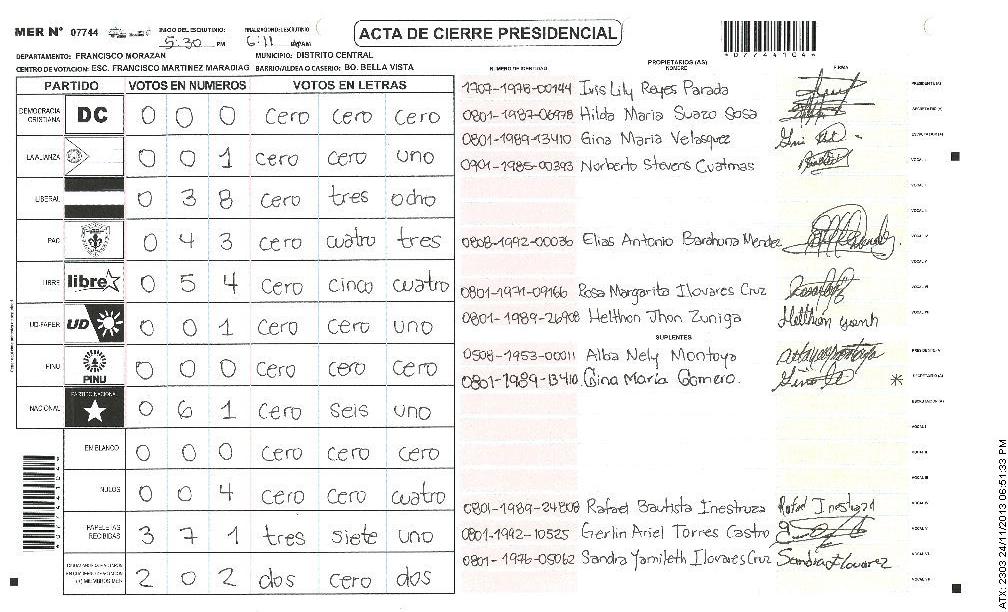 MER N° 07744 INICIO DEL ESCRUTINIO: 5:30 PM FINALIZACION DEL ESCRUTINIO: 6:11
ACTA DE CIERRE PRESIDENCIAL
DEPARTAMENTO: FRANCISCO MORAZAN MUNICIPIO: DISTRITO CENTRAL
CENTRO DE VOTACION: ESC. FRANCISCO MARTINEZ MARADIAG BARRIO/ALDEA O CASERIO: BO. BELLA VISTA
*077441044*
PARTIDO VOTOS EN NUMEROS VOTOS EN LETRAS
DEMOCRACIA CRISTIANA DC 0 0 0 cero cero cero
LA ALIANZA 0 0 1 cero cero uno
LIBERAL 0 3 8 cero tres ocho
PAC 0 4 3 cero cuatro tres
LIBRE libre 0 5 4 cero cinco cuatro
UD-FAPER UD 0 0 1 cero cero uno
PINU PINU 0 0 0 cero cero cero
NACIONAL PARTIDO NACIONAL 0 6 1 cero seis uno
EN BLANCO 0 0 0 cero cero cero
NULOS 0 0 4 cero cero cuatro
PAPELETAS RECIBIDAS 3 7 1 tres siete uno
2 0 2 dos cero dos
NUMERO DE IDENTIDAD PROPIETARIOS (AS) NOMBRE FIRMA
1707-1978-00144 Iris Lily Reyes Parada PRESIDENTE(A)
0801-1987-06978 Hilda Maria Suazo Sosa SECRETARIO(A)
0801-1989-13410 Gina Maria Velasquez ESCRUTADOR(A)
0901-1985-00393 Norberto Stevens Cuatmas VOCAL I
VOCAL II
VOCAL III
0808-1992-00036 Elias Antonio Barahona Mendez VOCAL IV
VOCAL V
0801-1971-09166 Rosa Margarita Ilovares Cruz VOCAL VI
0801-1989-26908 Helthon Jhon Zuniga VOCAL VII
SUPLENTES
0508-1953-00011 Alba Nely Montoya PRESIDENTE(A)
0801-1989-13410 Gina María Gomero. * SECRETARIO(A)
ESCRUTADOR(A)
VOCAL I
VOCAL II
VOCAL III
0801-1989-24808 Rafael Bautista Inestroza Rafael Inestroza VOCAL IV
0801-1992-10525 Gerlin Ariel Torres Castro VOCAL V
0801-1976-05062 Sandra Yamileth Ilovares Cruz Sandra Ilovarez VOCAL VI
VOCAL VII
ATX: 2303 24/11/2013 06:51:33 PM